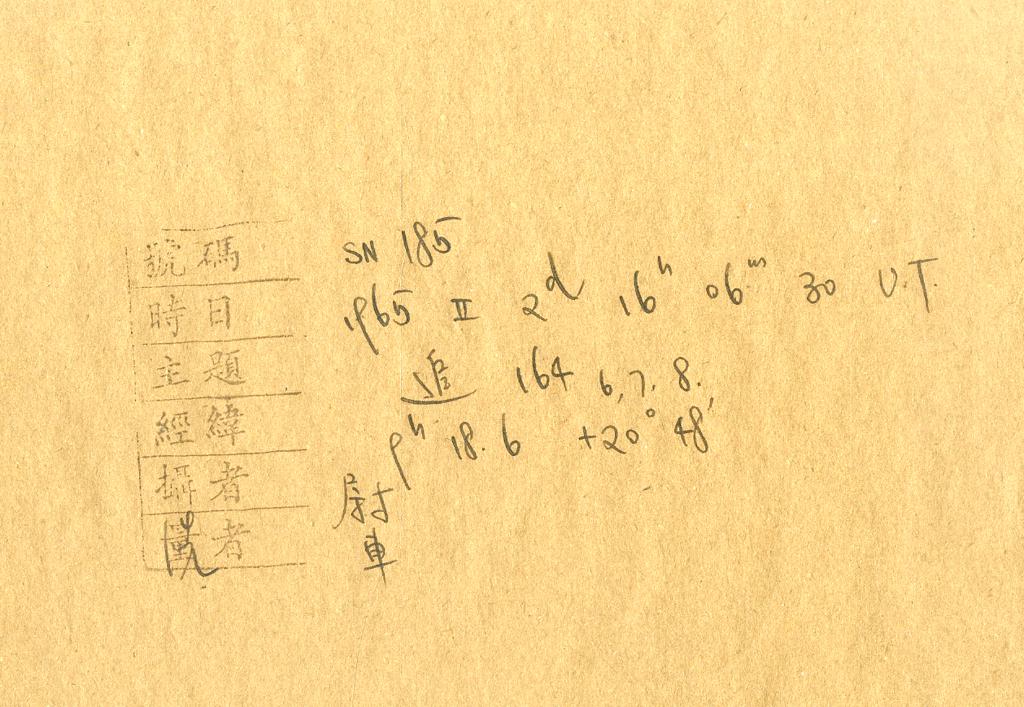 號碼 SN 185
時日 1965 II 2d 16h 06m 30 U.T.
主題 追 164 6, 7, 8.
經緯 9h 18.6 +20° 48'
攝者 尉
者 車